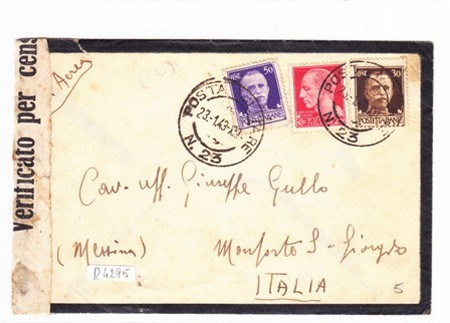 Verificato per cens
Aerea
POSTA MILITARE
23.1.43.XXI
N. 23
50
POSTE ITALIANE
30
POSTE ITALIANE
POSTA
N. 23
Cav. Uff. Giuseppe Gullo
(Messina)
Monforte S. Giorgio
R4295
ITALIA
5